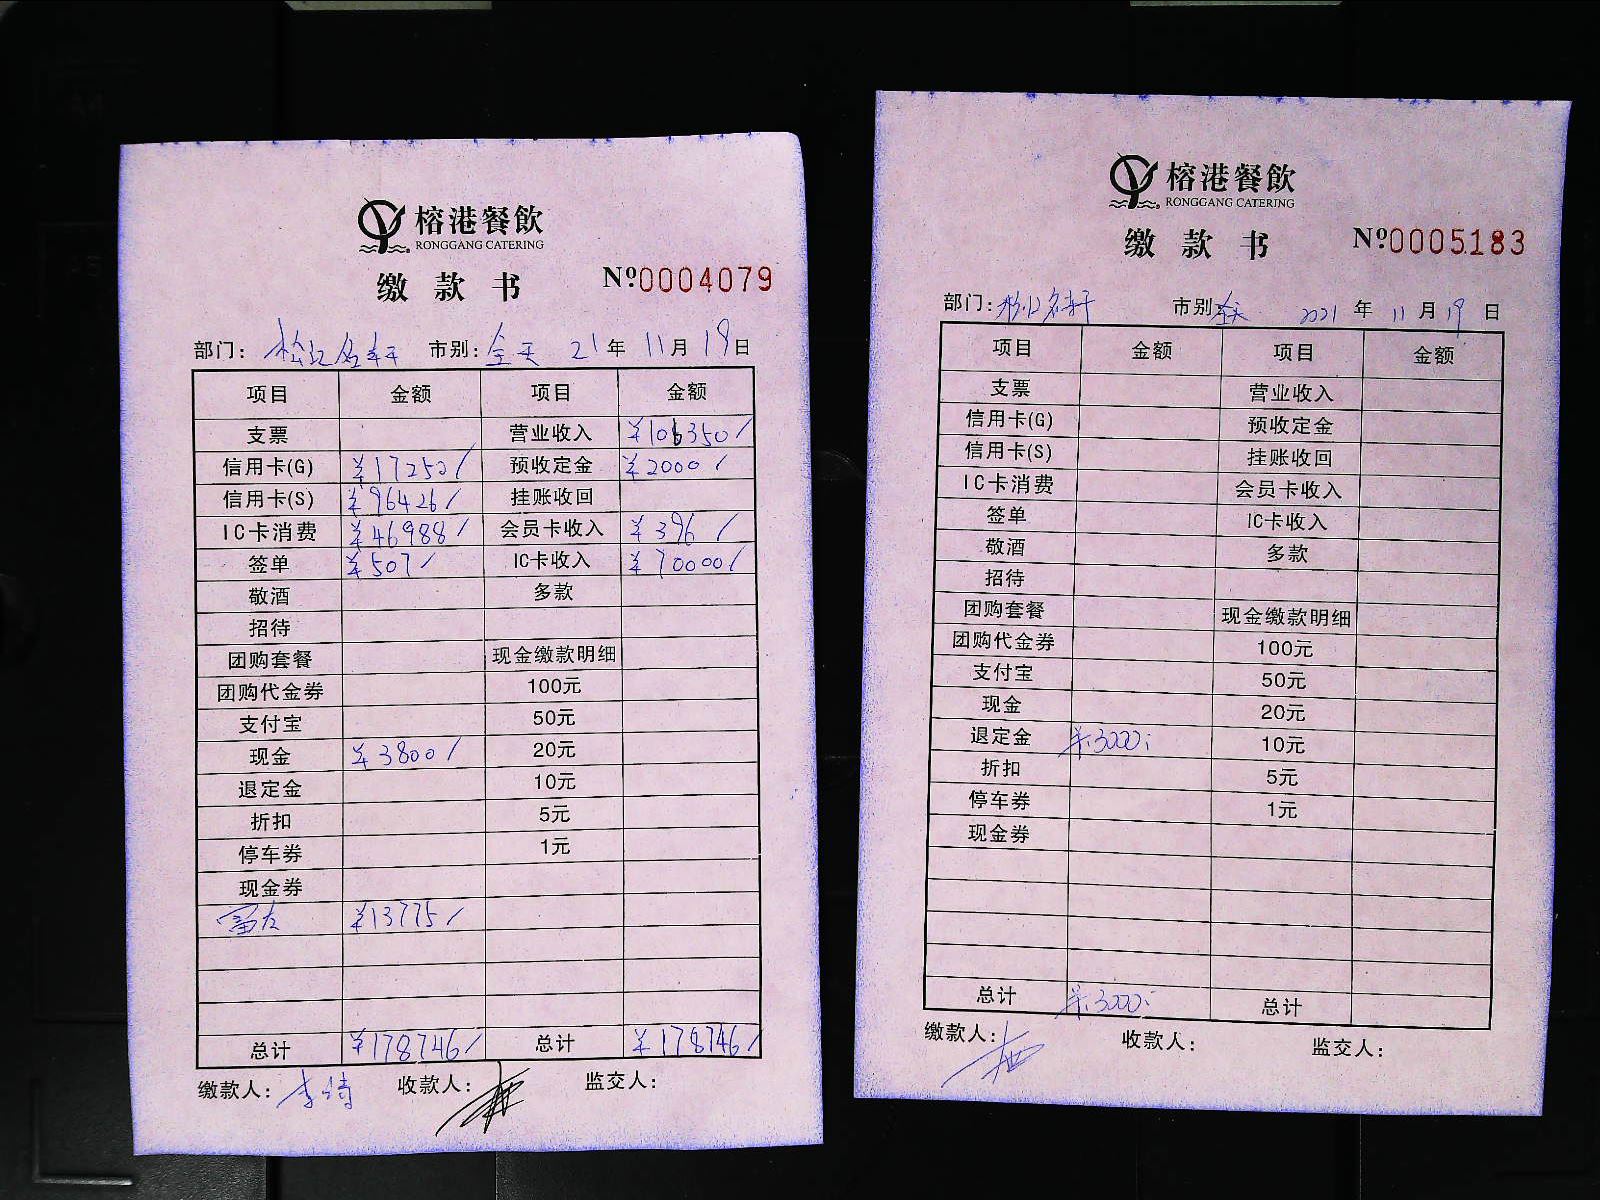 榕港餐飲
RONGGANG CATERING
缴款书 Nº:0004079
部门: 松江名轩 市别: 全天 21年 11月 19日
项目 金额 项目 金额
支票 营业收入 ¥106350/
信用卡(G) ¥17250/ 预收定金 ¥2000/
信用卡(S) ¥96426/ 挂账收回
IC卡消费 ¥46988/ 会员卡收入 ¥396/
签单 ¥507/ IC卡收入 ¥70000/
敬酒 多款
招待
团购套餐 现金缴款明细
团购代金券 100元
支付宝 50元
现金 ¥3800/ 20元
退定金 10元
折扣 5元
停车券 1元
现金券
富友 ¥13775/
总计 ¥178746/ 总计 ¥178746/
缴款人: 李诗 收款人: 监交人:
榕港餐飲
RONGGANG CATERING
缴款书 Nº:0005183
部门: 松江名轩 市别: 全天 2021年 11月 19日
项目 金额 项目 金额
支票 营业收入
信用卡(G) 预收定金
信用卡(S) 挂账收回
IC卡消费 会员卡收入
签单 IC卡收入
敬酒 多款
招待
团购套餐 现金缴款明细
团购代金券 100元
支付宝 50元
现金 20元
退定金 ¥:3000: 10元
折扣 5元
停车券 1元
现金券
总计 ¥:3000: 总计
缴款人: 收款人: 监交人: